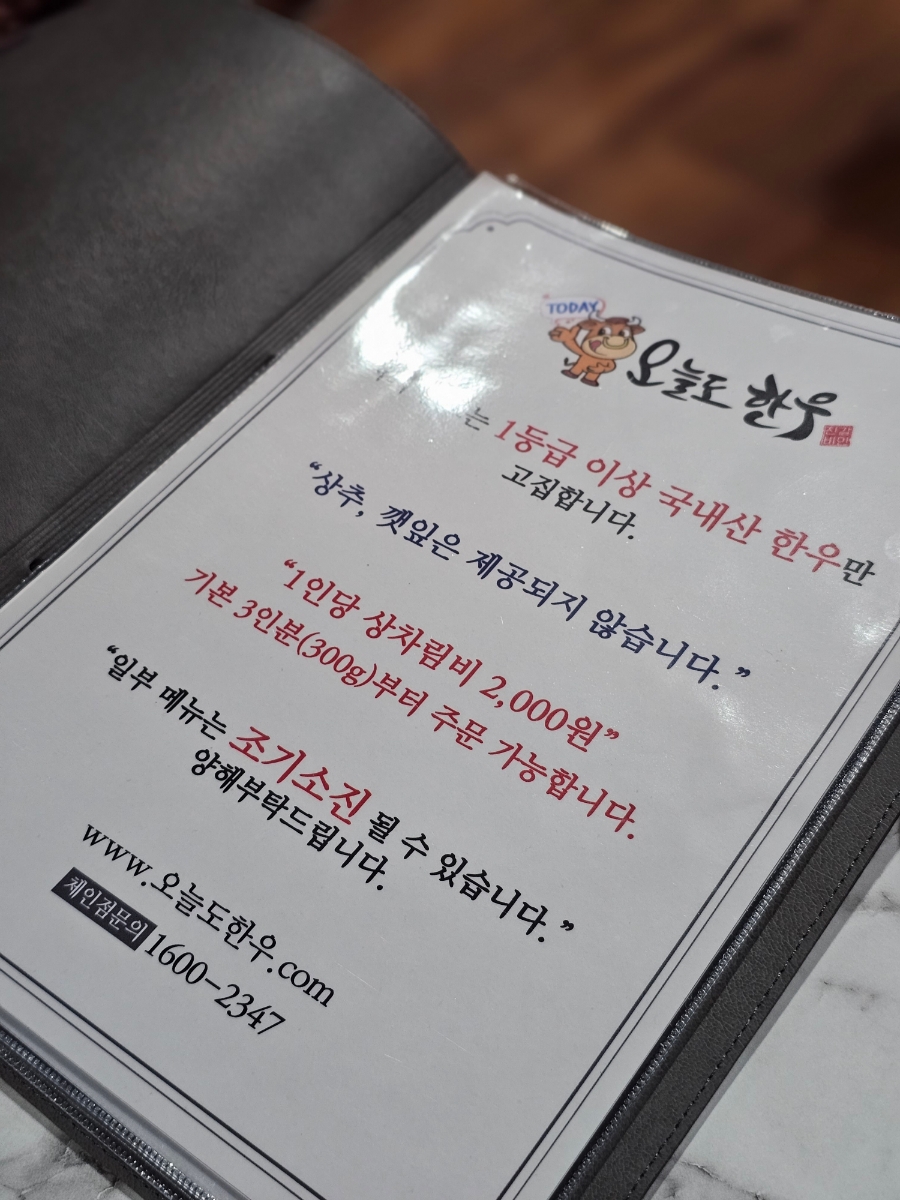 TODAY
오늘도 한우
는 1등급 이상 국내산 한우만
고집합니다.
“상추, 깻잎은 제공되지 않습니다.”
“1인당 상차림비 2,000원”
기본 3인분(300g)부터 주문 가능합니다.
“일부 메뉴는 조기소진 될 수 있습니다.”
양해부탁드립니다.
www.오늘도한우.com
체인점문의 1600-2347